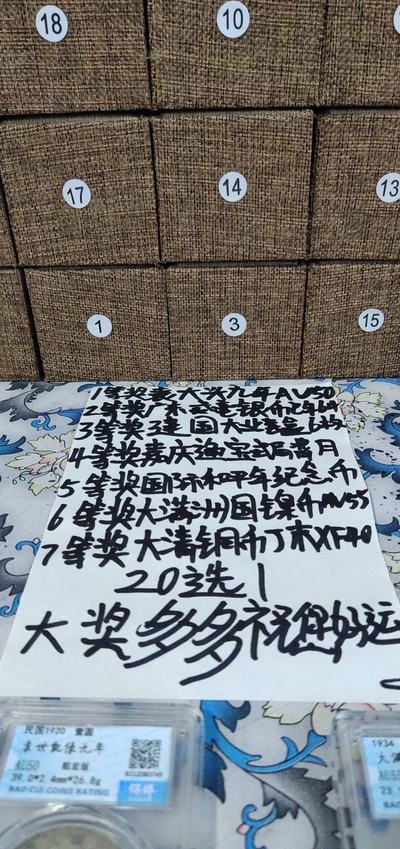 18
10
17
14
13
1
3
15
1等奖袁大头九年AU50
2等奖广东
3等奖
4等奖嘉庆通宝
5等奖国际和平年纪念币
6等奖大满洲国镍币AU55
7等奖大清铜币丁未XF40
20选1
大奖多多祝您好运
民国1920 壹圆
袁世凯像九年
AU50
39.0*2.4mm*26.8g
BAO CUI COINS RATING
保粹
1934
大满
AU55
23.
BAO